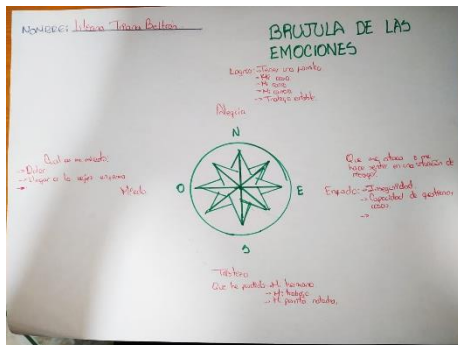 NOMBRE: Liliana Triana Beltran
BRUJULA DE LAS
EMOCIONES
Logros: -Tener una familia
→ Mi casa
→ Mi carro
→ Trabajo estable.
Alegria
N
Cual es mi miedo:
→ Dolor
→ Llegar a la vejez enferma
Miedo
O
E
Que me ataca o me
hace sentir en una situación de
riesgo?
Enfado: → Inseguridad.
→ Capacidad de gestionar
cosas
→
S
Tristeza
Que he perdido: → Mi hermano
→ Mi trabajo
→ Mi perrito